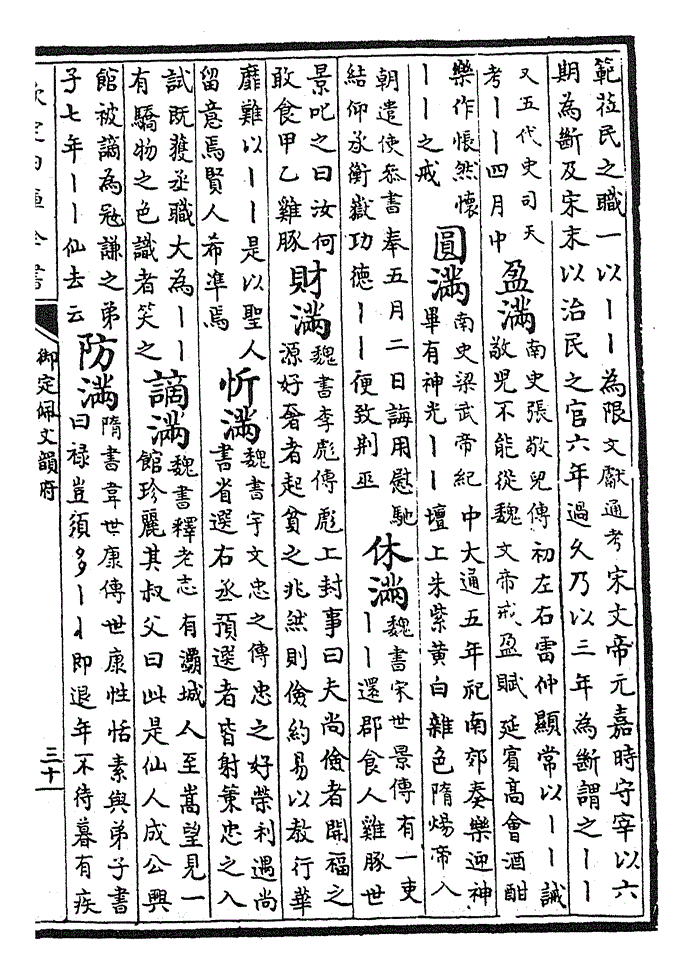 範莅民之職一以丨丨為限文獻通考宋文帝元嘉時守宰以六
期為斷及宋末以治民之官六年過久乃以三年為斷謂之丨丨
又五代史司天
考丨丨四月中
盈滿
南史張敬兒傳初左右雷仲顯常以丨丨誡
敬兒不能從魏文帝戒盈賦延賓高會酒酣
樂作悵然懷
丨丨之戒
圓滿
南史梁武帝紀中大通五年祀南郊奏樂迎神
畢有神光丨丨壇上朱紫黃白雜色隋煬帝入
朝遣使叅書奉五月二日誨用慰馳
結仰承衡嶽功德丨丨便致荆巫
休滿
魏書宋世景傳有一吏
丨丨還郡食人雞豚世
景叱之曰汝何
敢食甲乙雞豚
財滿
魏書李彪傳彪上封事曰夫尚儉者開福之
源好奢者起貧之兆然則儉約易以教行華
靡難以丨丨是以聖人
留意焉賢人希準焉
忻滿
魏書宇文忠之傳忠之好榮利遇尚
書省選右丞預選者皆射策忠之入
試既獲丞職大為丨丨
有驕物之色識者笑之
謫滿
魏書釋老志有灞城人至嵩望見一
館珍麗其叔父曰此是仙人成公興
館被謫為冦謙之弟
子七年丨丨仙去云
防滿
隋書韋世康傳世康性恬素與弟子書
曰禄豈須多丨丨即退年不待暮有疾
欽定四庫全書
御定佩文韻府
三十